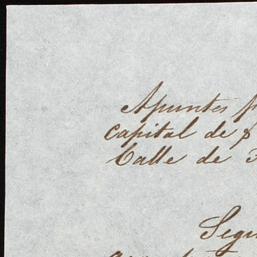 Apuntes p
capital de $
Calle de
Segu